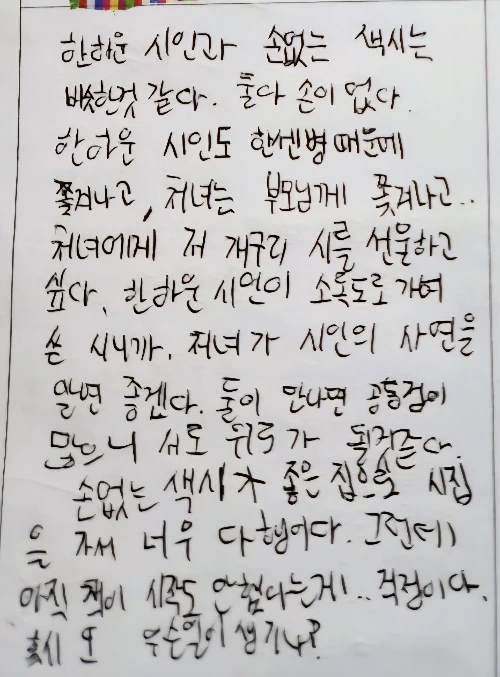 한하운 시인과 손없는 색시는
비슷한것 같다. 둘다 손이 없다.
한하운 시인도 한센병때문에
쫓겨나고, 처녀는 부모님께 쫓겨나고..
처녀에게 저 개구리 시를 선물하고
싶다. 한하운 시인이 소록도로 가며
쓴 시니까. 처녀가 시인의 사연을
알면 좋겠다. 둘이 만나면 공통점이
많으니 서로 위로가 될것같다.
손없는 색시가 좋은 집으로 시집
을 가서 너무 다행이다. 그런데
아직 책이 시작도 안했다는게.. 걱정이다.
혹시 또 무슨일이 생기나?